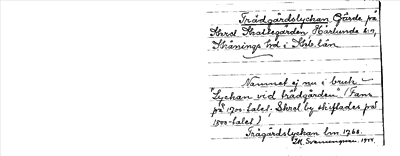 Trädgårdslyckan Gärde på
Skrol Skattegården, Härlunda 6:9,
Skånings hd i Skbs. län
Namnet ej nu i bruk
"Lyckan vid trädgården" (Fans
på 1700-talet; Skrol by skiftades på
1800-talet)
Trägårdslyckan lm. 1768.
1954.